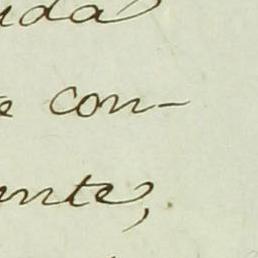 uda
e con-
ente,